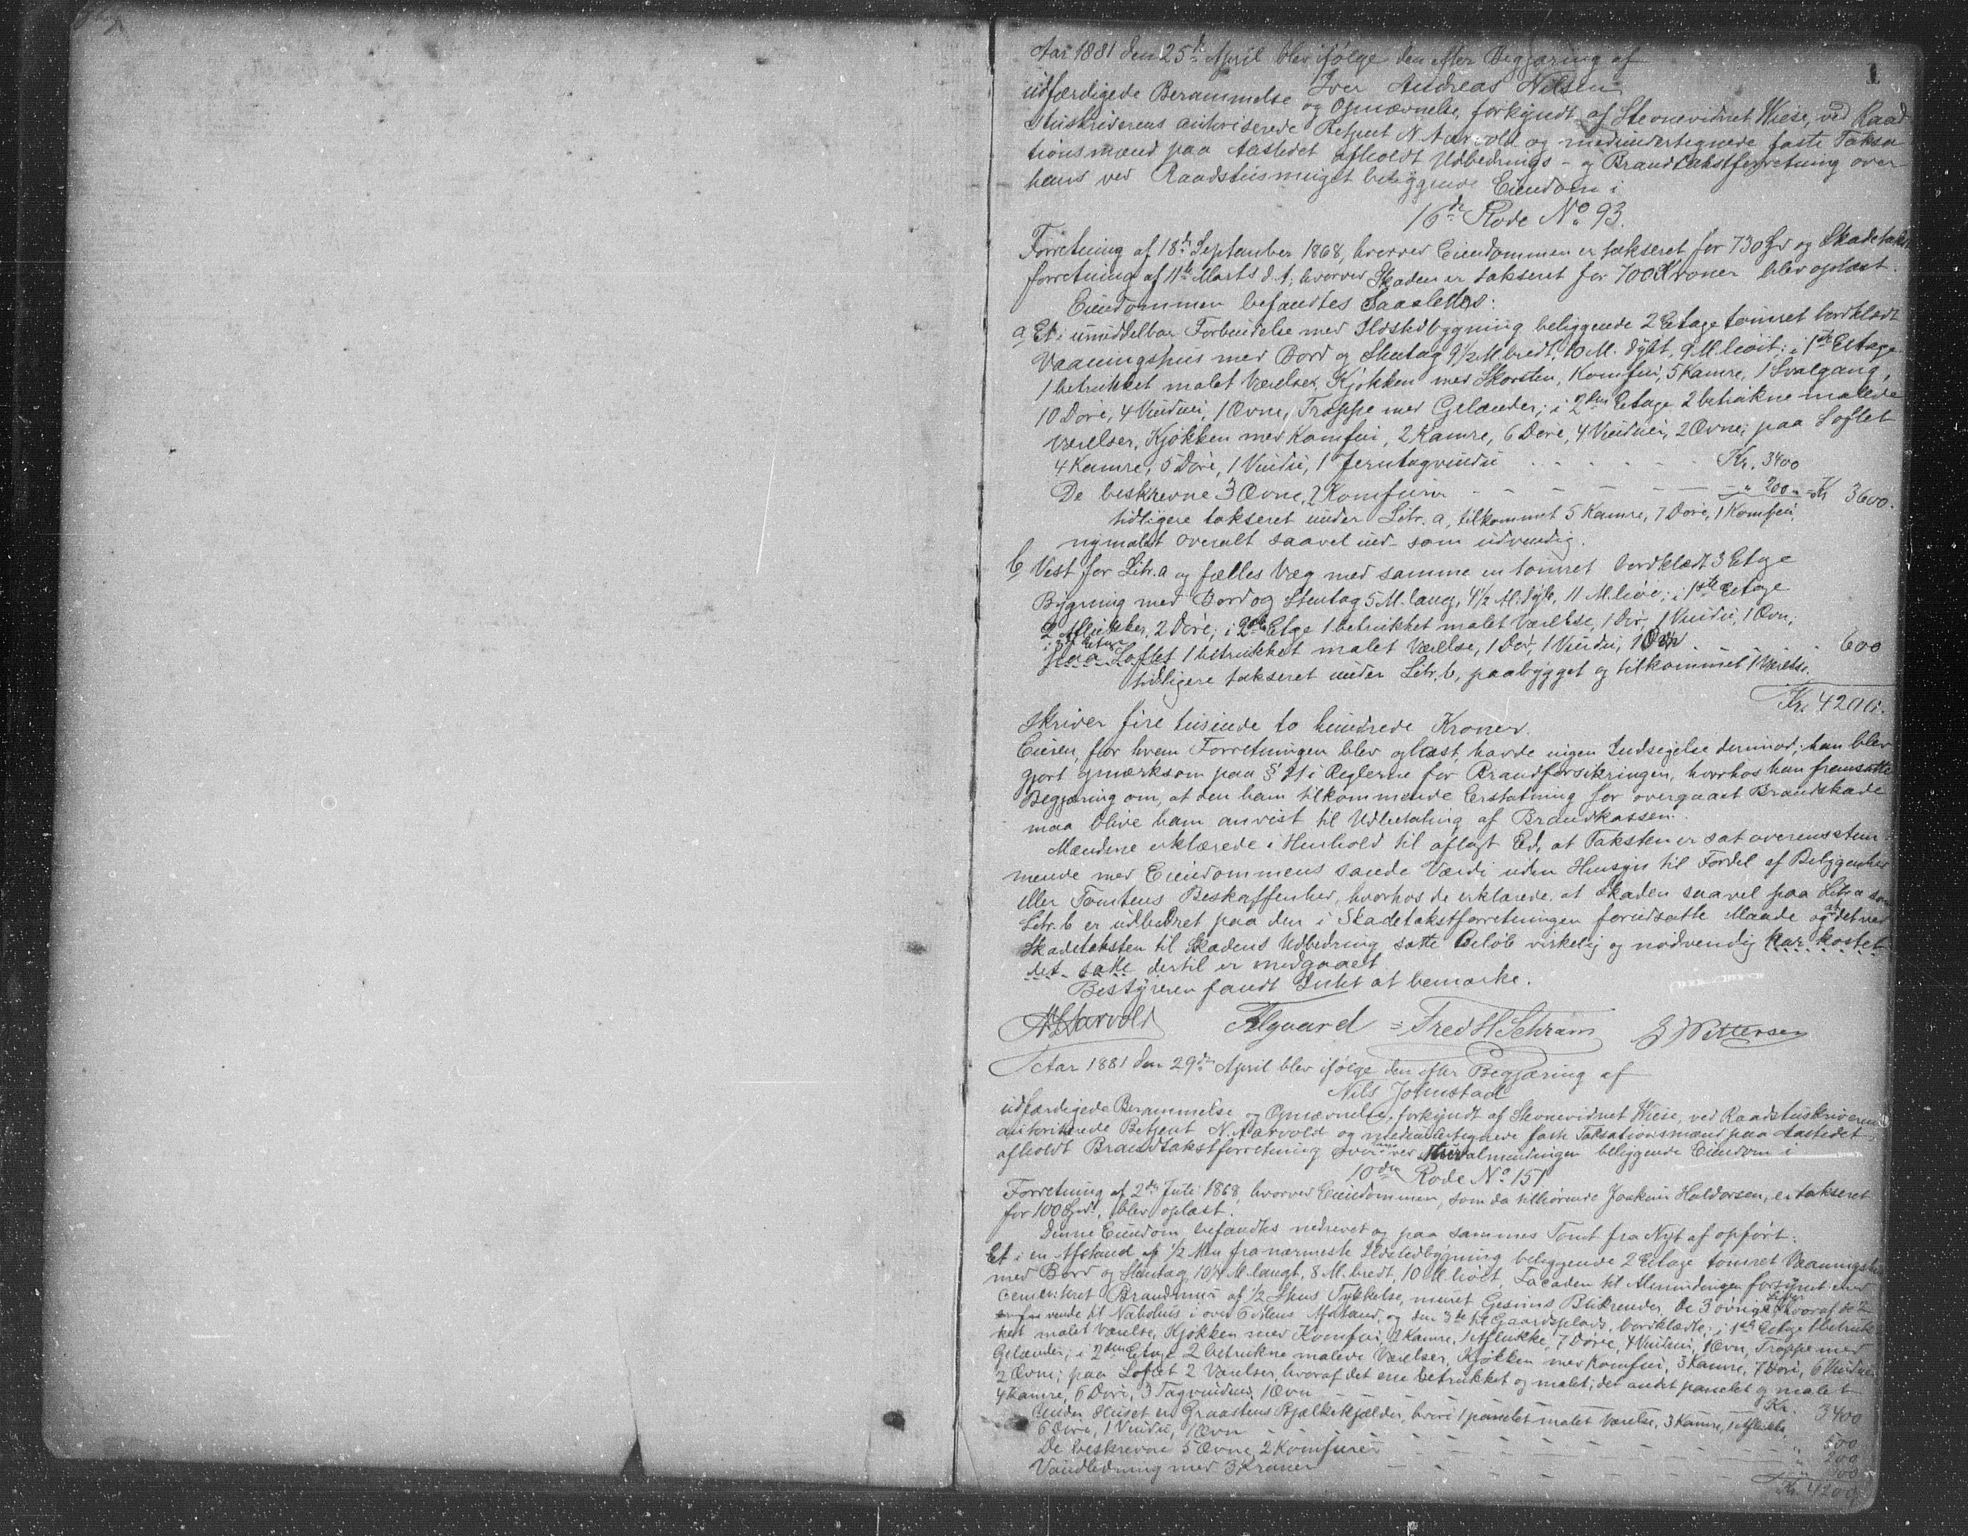 1
Aar 1881 den 25de April blev ifølge den efter Begjæring af
Iver Andreas Nilsen
udfærdigede Berammelse og Opnævnelse, forkyndt af Stevnevidnet Wiese, ved Raad
stuskriverens autoriserede Betjent N. Aarvold og medundertegnede faste Taksa
tionsmænd paa Aastedet afholdt Udbedrings- og Brandtakstforretning over
hans ved Raadstusmuget beliggende Eiendom i
16de Rode No. 93.
Forretning af 18de September 1868, hvorved Eiendommen er takseret for 730 Spd og Skadetakst
forretning af 11te Marts d. A., hvorved Skaden er takseret for 700 Kroner blev oplæst.
Eiendommen befandtes saaledes:
a Et i umiddelbar Forbindelse med Ildstedbygning beliggende 2 Etage tømret bordklædt
Vaaningshus med Bord og Stentag 9 1/2 M. bredt, 10 M. dybt, 9 M. høit; i 1ste Etage
1 betrukket malet Værelse, Kjøkken med Skorsten, Komfur, 5 Kamre, 1 Svalgang,
10 Døre, 4 Vinduer, 1 Ovn, Trappe med Gelænder; i 2den Etage 2 betrukne malede
Værelser, Kjøkken med Komfur, 2 Kamre, 6 Døre, 4 Vinduer, 2 Ovne; paa Loftet
4 Kamre, 5 Døre, 1 Vindu, 1 Jerntagvindu Kr. 3400
De beskrevne 3 Ovne, 2 Komfurer " 200 = Kr 3600.
tidligere takseret under Litr. a, tilkommet 5 Kamre, 7 Døre, 1 Komfur,
nymalet overalt saavel ind- som udvendig.
b Vest for Litr. a og fælles Væg med samme en tømret bordklædt 3 Etage
Bygning med Bord og Stentag 5 M. lang, 4 1/2 M. dyb, 11 M. høi; i 1ste Etage
2 Aflukker, 2 Døre; i 2den Etage 1 betrukket malet Værelse, 1 Dør, 1 Vindu, 1 Ovn;
i 3die Etage
paa Loftet 1 betrukket malet Værelse, 1 Dør, 1 Vindu, 1 Ovn 600
tidligere takseret under Litr. b, paabygget og tilkommet 1 Værelse.
Kr. 4200.
Skriver fire tusinde to hundrede Kroner.
Eieren, for hvem Forretningen blev oplæst, havde ingen Indsigelse derimod; han blev
gjort opmærksom paa § 21 i Reglerne for Brandforsikringen, hvorhos han fremsatte
Begjæring om, at den ham tilkommende Erstatning for overgaaet Brandskade
maa blive ham anvist til Udbetaling af Brandkassen.
Mændene erklærede i Henhold til aflagt Ed, at Taksten er sat overensstem
mende med Eiendommens sande Værdi uden Hensyn til Fordel af Beliggenhed
eller Tomtens Beskaffenhed, hvorhos de erklærede, at Skaden saavel paa Litr. a som
Litr. b er udbedret paa den i Skadetakstforretningen forudsatte Maade og at det ved
Skadetaksten til Skadens Udbedring satte Beløb virkelig og nødvendig har kostet
det satte dertil er medgaaet
Bestyreren fandt Intet at bemærke.
N Aarvold Fred H Schram
Aar 1881 den 29de April blev ifølge den efter Begjæring af
Nils Johnstad
udfærdigede Berammelse og Opnævnelse, forkyndt af Stevnevidnet Wiese, ved Raadstuskriverens
autoriserede Betjent N. Aarvold og medundertegnede faste Taksationsmænd paa Aastedet
afholdt Brandtakstforretning over hans ved almendingen beliggende Eiendom i
10de Rode No. 151
Forretning af 2den Juli 1868, hvorved Eiendommen, som da tilhørende Joakim Haldorsen, er takseret
for 100 Spd., blev oplæst.
Denne Eiendom befandtes nedrevet og paa sammes Tomt fra Nyt af opført:
Et i en Afstand af 1/2 Alen fra nærmeste Ildstedbygning beliggende 2 Etage tømret Vaaningshus
med Bord og Stentag, 10 1/4 M. langt, 8 M. bredt, 10 M. høit, Facaden til Almendingen forsynet med
cementeret Brandmur af 1/2 Stens Tykkelse, muret Gesims Blikrender, De 3 øvrige Sider hvoraf de 2
vende til Nabohus i over 6 Alens Afstand, og den 3die til Gaardsplads, bordklædte; i 1ste Etage 1 betruk
ket malet Værelse, Kjøkken med Komfur, 2 Kamre, 1 Aflukke, 7 Døre, 4 Vinduer, 1 Ovn, Trappe med
Gelænder; i 2den Etage 2 betrukne malede Værelser, Kjøkken med Komfur, 3 Kamre, 7 Døre, 6 Vinduer
2 Ovne; paa Loftet 2 Værelser, hvoraf det ene betrukket og malet, det andet panelet og malet
4 Kamre, 6 Døre, 3 Tagvinduer, 1 Ovn Kr. 3400
Under Huset en Graastens Bjelkekjælder, hvori 1 panelet malet Værelse, 3 Kamre, 1 Aflukke,
6 Døre, 1 Vindu, 1 Ovn " 500
De beskrevne 5 Ovne, 2 Komfurer " 200
Vandledning med 3 Kraner " 100
Kr. 4200